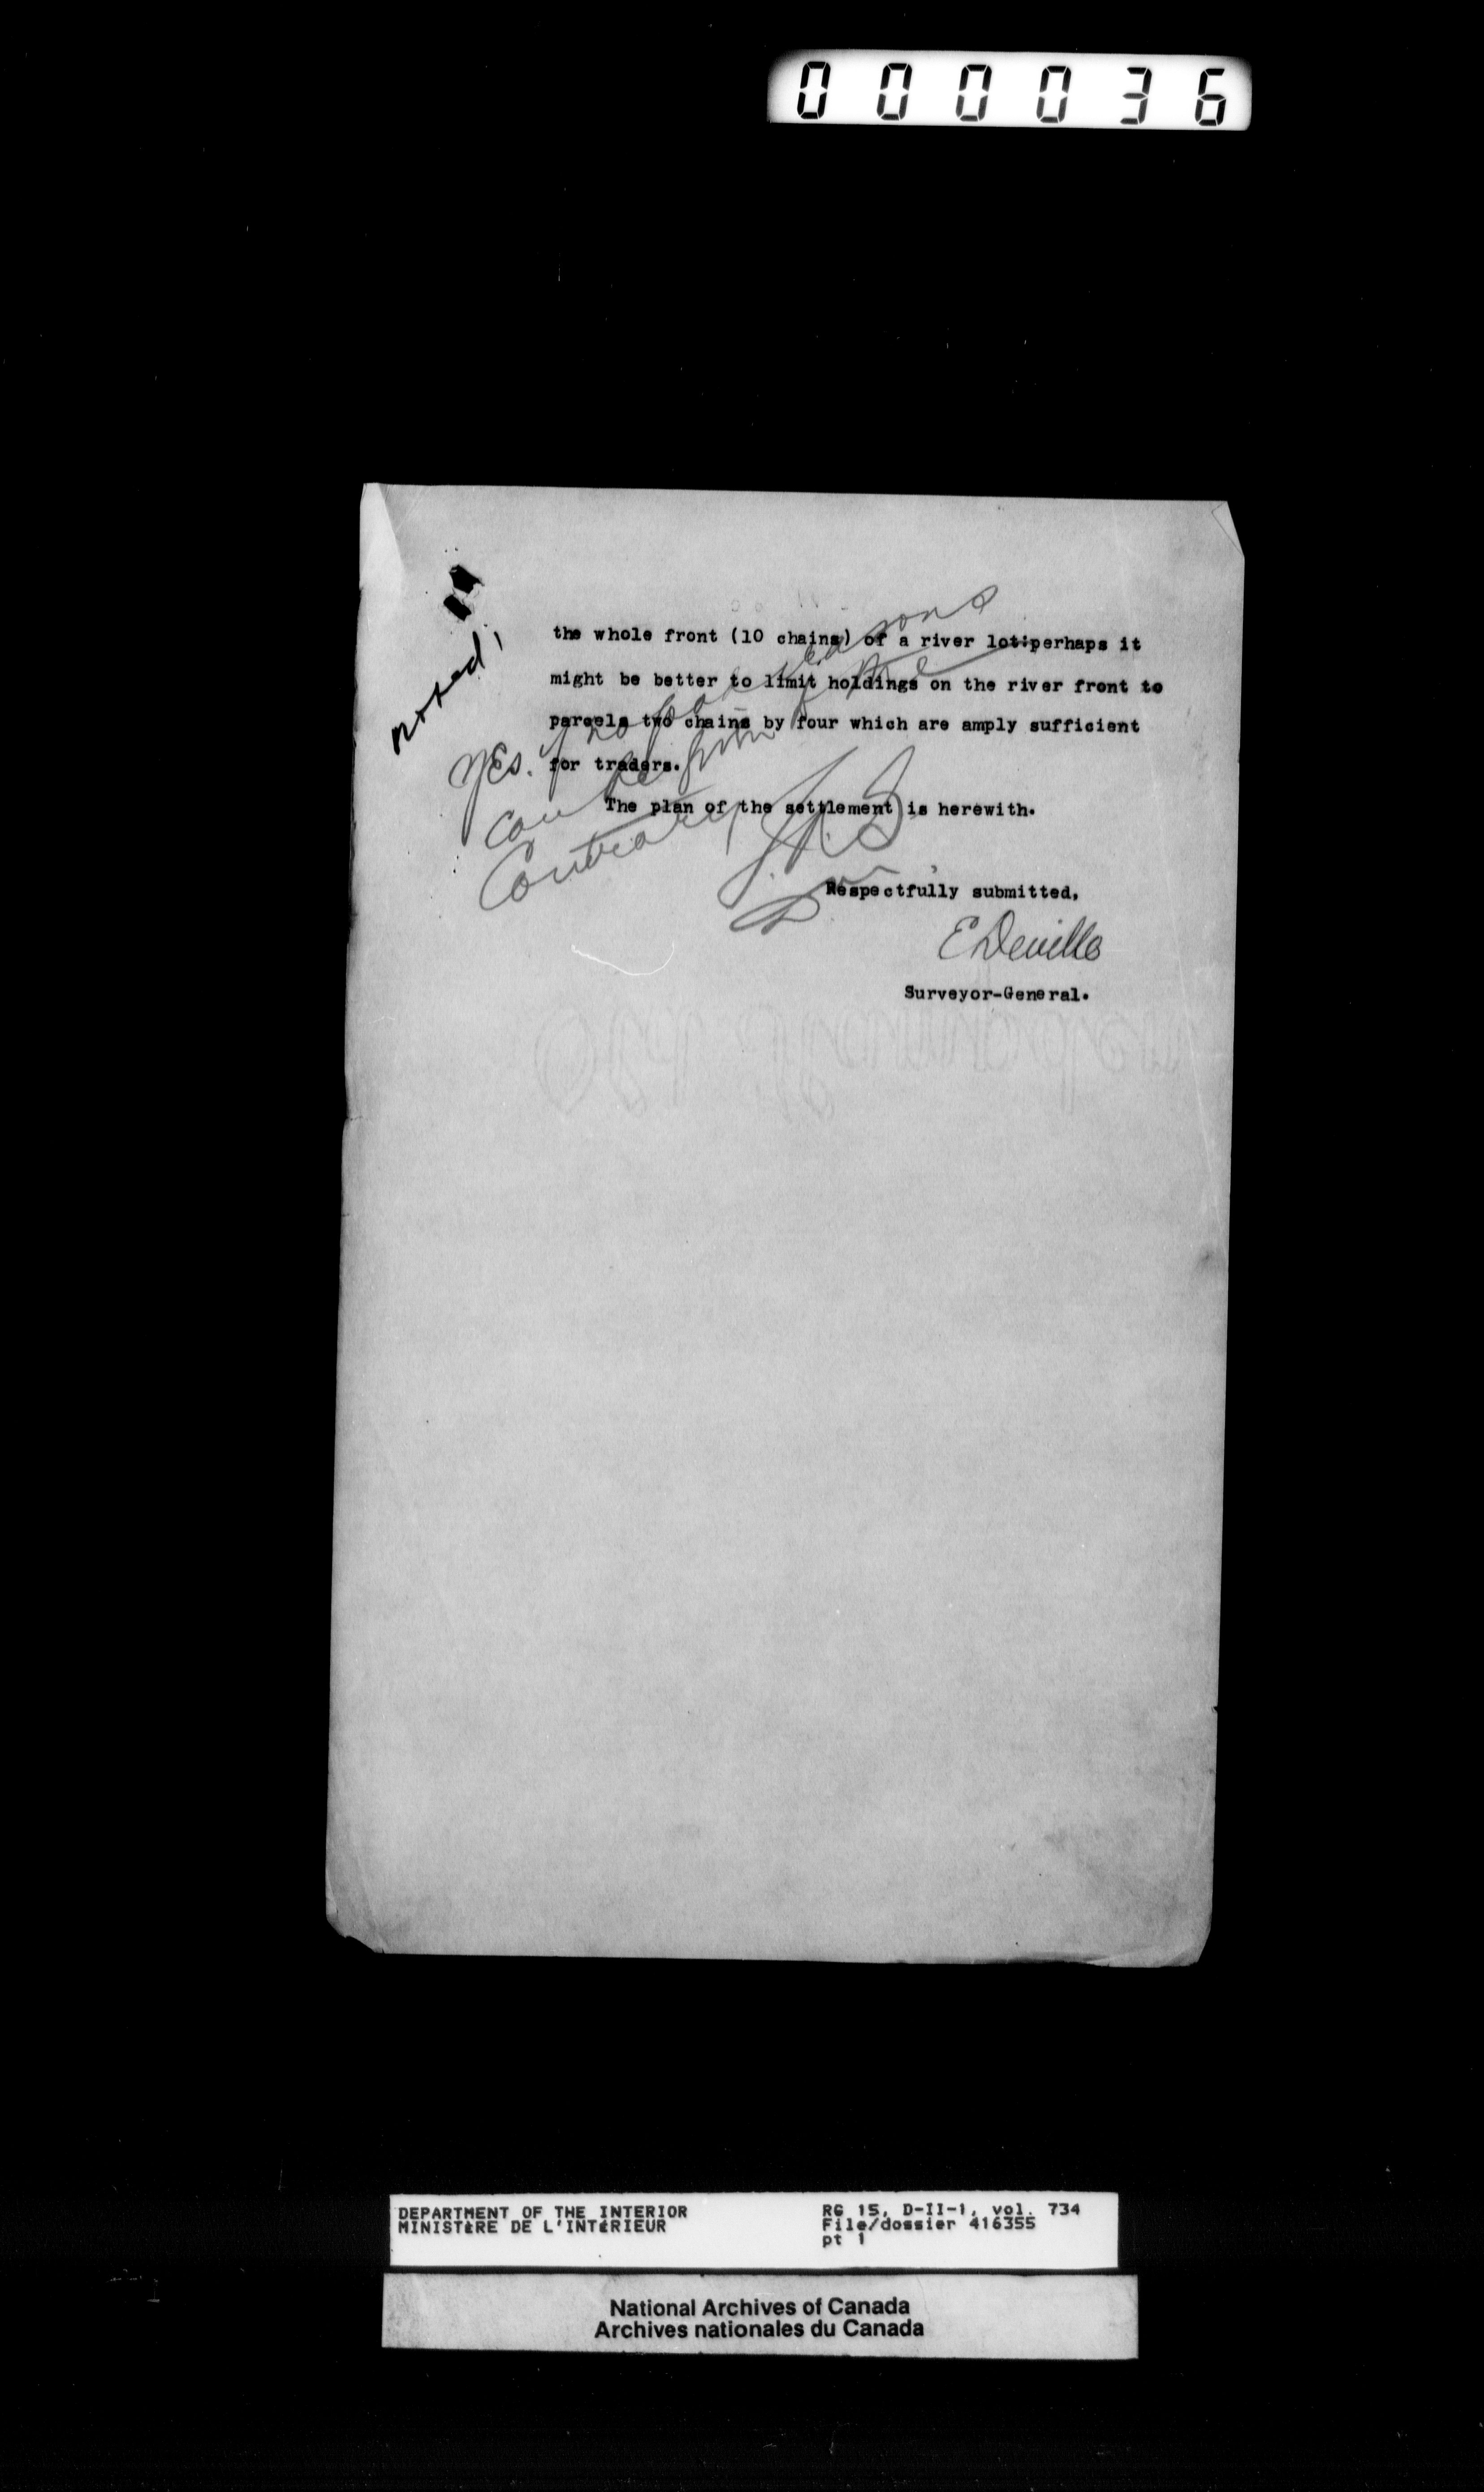 000036
noted!
the whole front (10 chains) of a river lot:perhaps it
might be better to limit holdings on the river front to
parcels two chains by four which are amply sufficient
for traders.
The plan of the settlement is herewith.
Yes. if no reasons
can be given me
Contrary
J.A.S
Respectfully submitted,
E Deville
Surveyor-General.
DEPARTMENT OF THE INTERIOR
MINISTÈRE DE L'INTÉRIEUR
RG 15, D-II-1, vol. 734
File/dossier 416355
pt 1
National Archives of Canada
Archives nationales du Canada